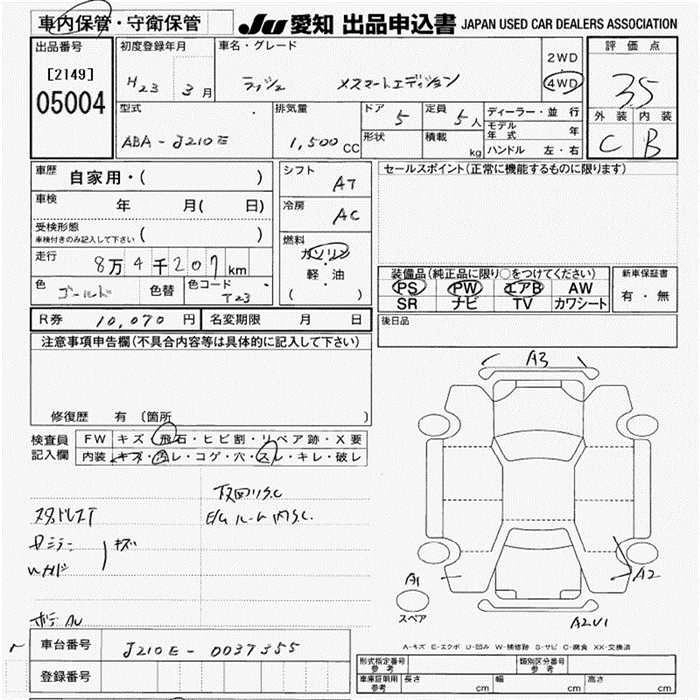 車内保管・守衛保管 JU 愛知 出品申込書 JAPAN USED CAR DEALERS ASSOCIATION
出品番号 [2149] 05004
初度登録年月 H23 3月
車名・グレード ラッシュ
2WD
4WD
評価点 3.5
外装 C 内装 B
型式 ABA-J210E
排気量 1,500 CC
ドア 5
定員 5人
形状
積載 kg
ディーラー・並行
モデル年式 年
ハンドル 左・右
車歴 自家用・( )
車検 年 月( 日)
受検形態 車検付きのみ記入して下さい ( )
走行 8万4千207km
色 ゴールド 色替 色コード T23
シフト AT
冷房 AC
燃料 ガソリン・軽油 ( )
セールスポイント(正常に機能するものに限ります)
装備品(純正品に限り○をつけてください)
PS PW エアB AW
SR ナビ TV カワシート
新車保証書 有・無
後日品
R券 10,070円 名変期限 月 日
注意事項申告欄(不具合内容等は具体的に記入して下さい)
修復歴 有 (箇所 )
検査員記入欄
FW キズ・飛石・ヒビ割・リペア跡・X要
内装 キズ・汚レ・コゲ・穴・スレ・キレ・破レ
E/Gルーム内S.C.
キズ
A3
A1
A2
A2U1
スペア
車台番号 J210E-0037355
登録番号
A-キズ E-エクボ U-凹み W-補修跡 S-サビ C-腐食 XX-交換済
形式指定番号 参考
類別区分番号 参考
車庫証明用 参考 長さ cm 幅 cm 高さ cm